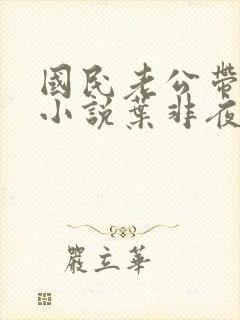 國民老公帶
小說葉非夜
嚴立華